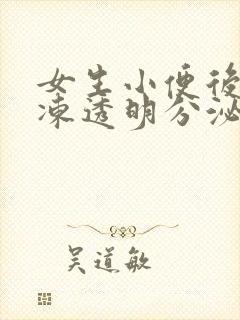 女生小便後
凍透明分泌
吴道敏